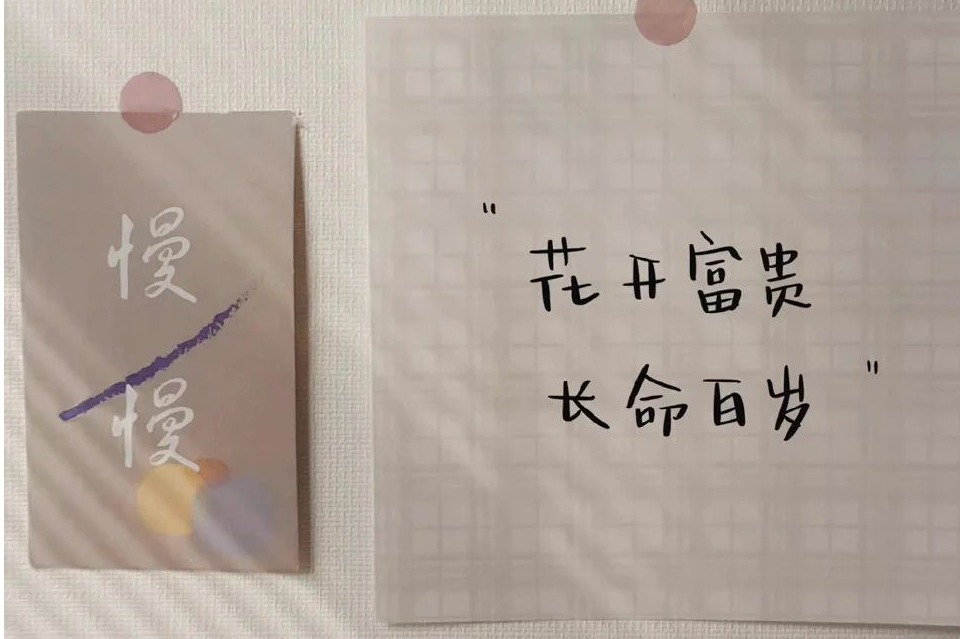 慢
慢
"花开富贵
长命百岁"